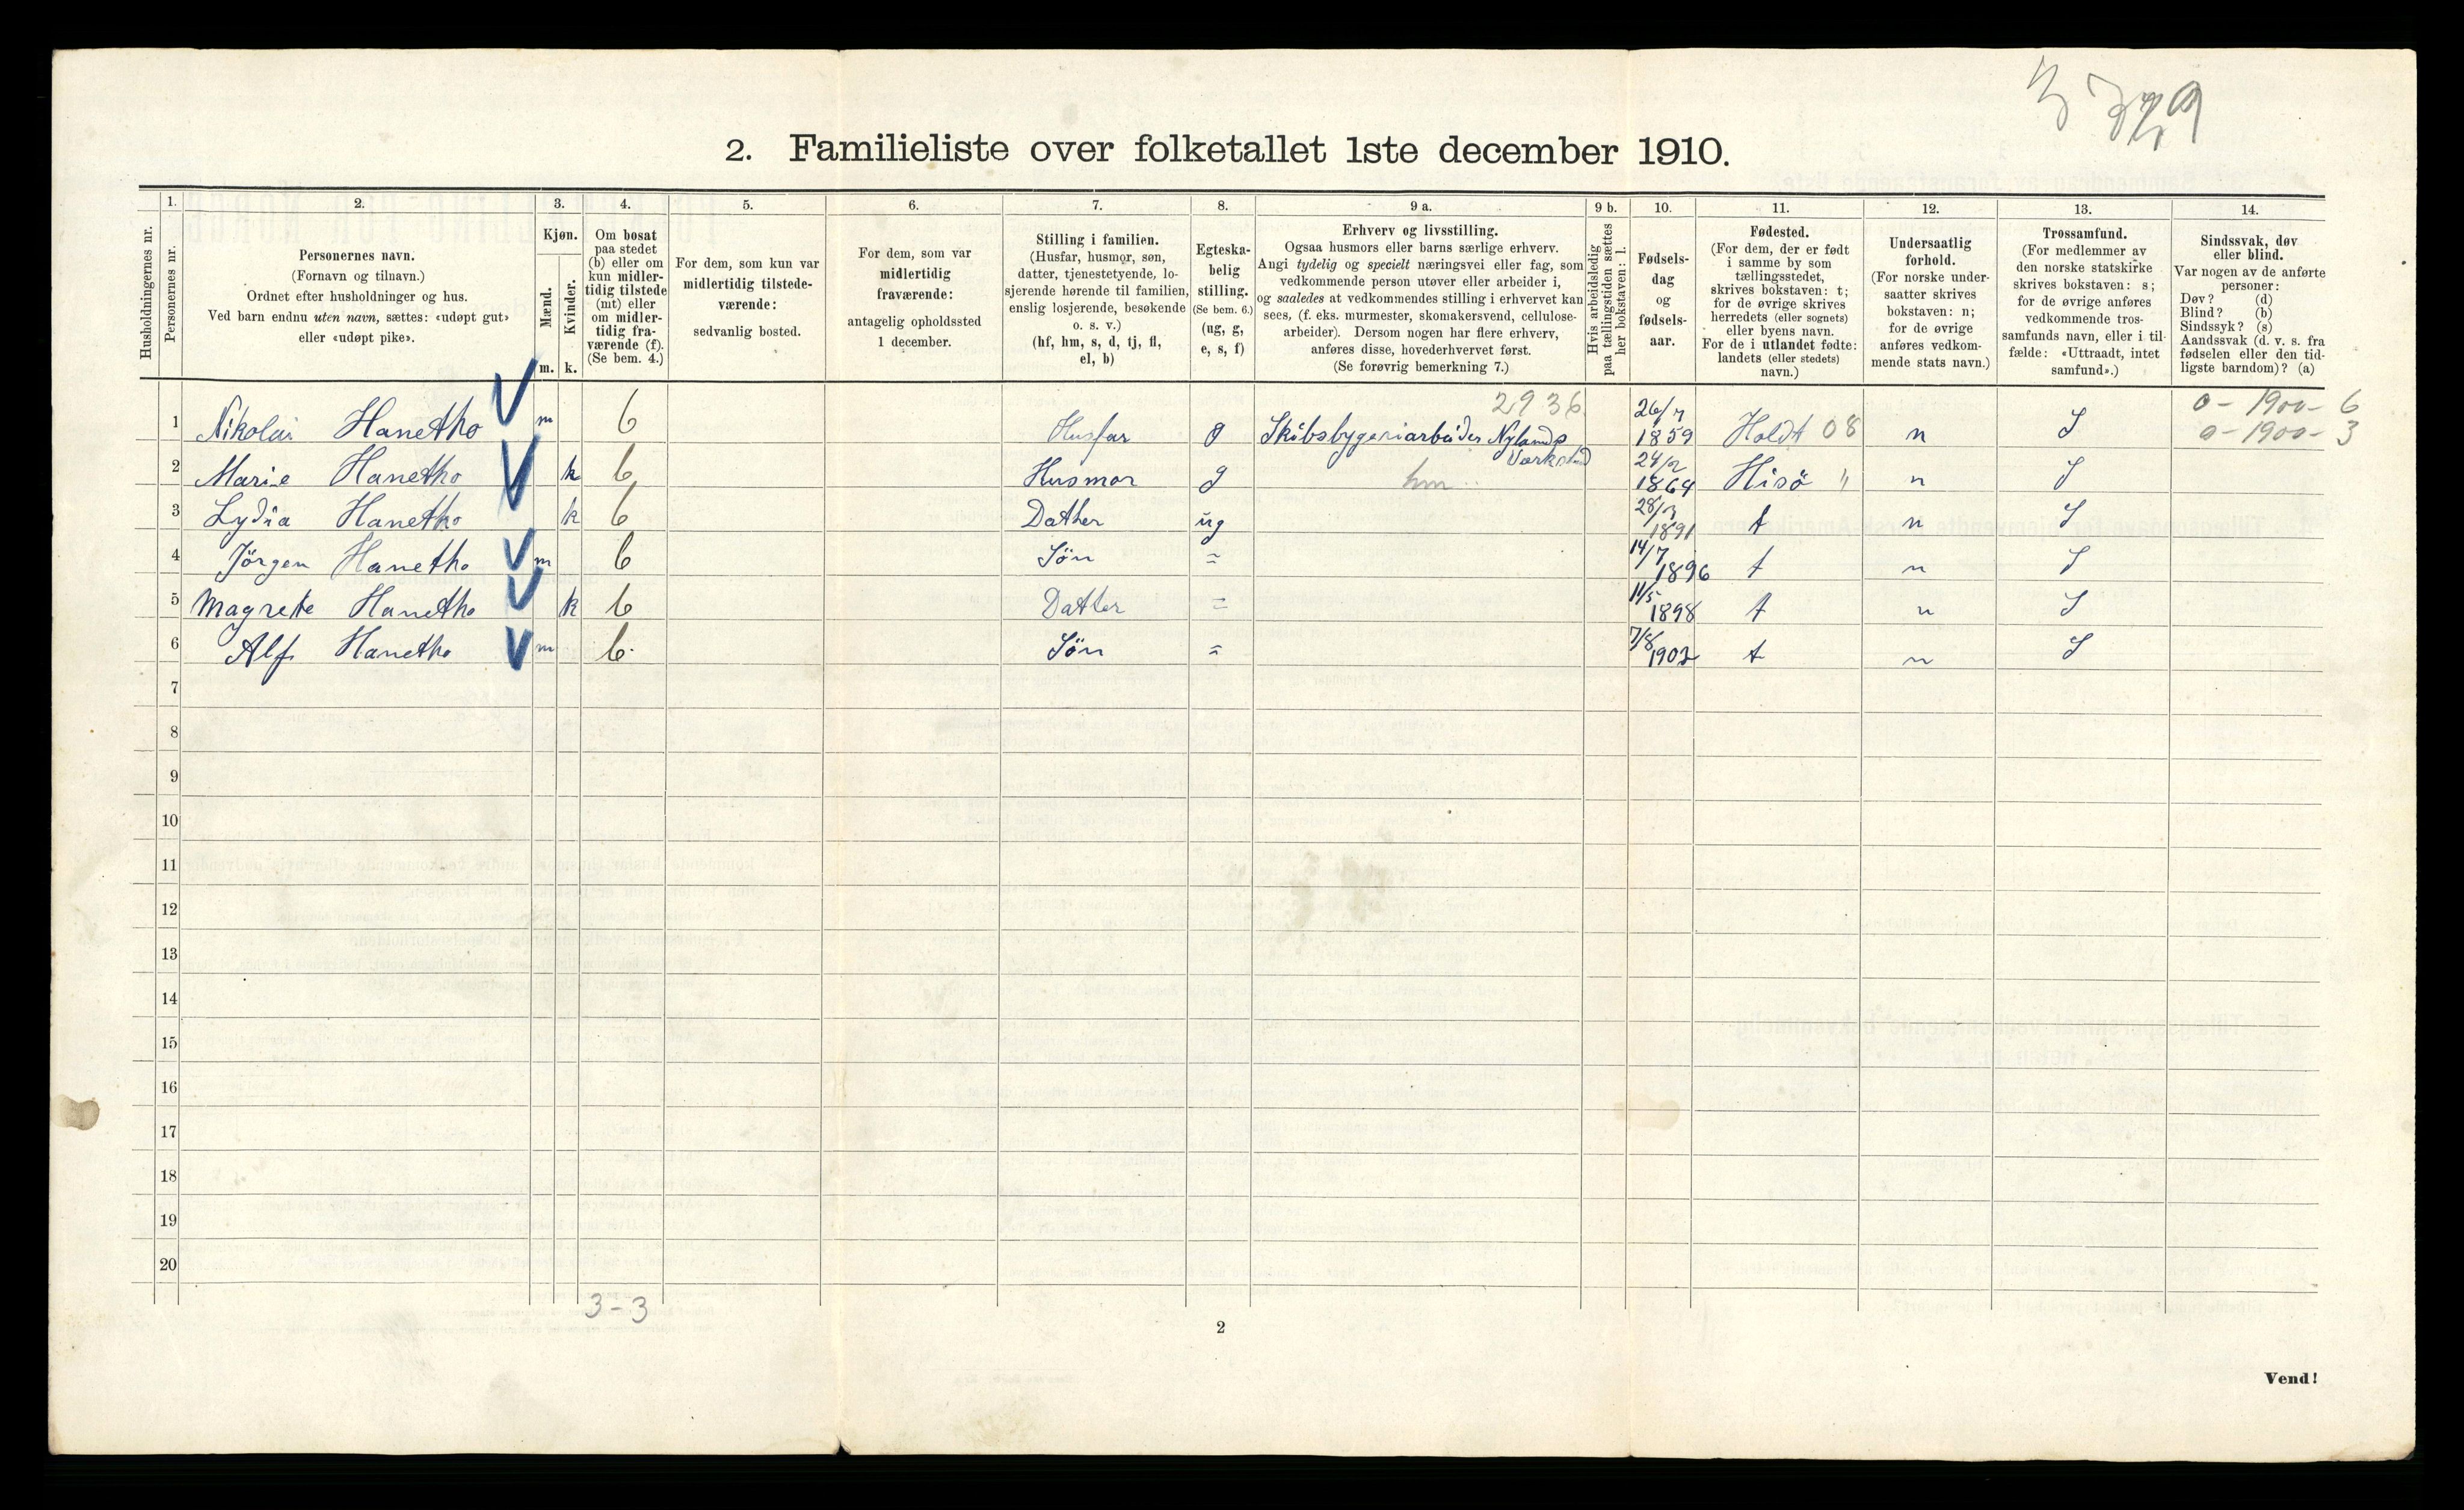 2. Familieliste over folketallet 1ste december 1910.
Husholdningernes nr.
1.
Personernes nr.
2.
Personernes navn.
(Fornavn og tilnavn.)
Ordnet efter husholdninger og hus.
Ved barn endnu uten navn, sættes: «udøpt gut»
eller «udøpt pike».
3.
Kjøn.
Mænd.
Kvinder.
m. k.
4.
Om bosat
paa stedet
(b) eller om
kun midler-
tidig tilstede
(mt) eller
om midler-
tidig fra-
værende (f).
(Se bem. 4.)
5.
For dem, som kun var
midlertidig tilstede-
værende:
sedvanlig bosted.
6.
For dem, som var
midlertidig
fraværende:
antagelig opholdssted
1 december.
7.
Stilling i familien.
(Husfar, husmor, søn,
datter, tjenestetyende, lo-
sjerende hørende til familien,
enslig losjerende, besøkende
o. s. v.)
(hf, hm, s, d, tj, fl,
el, b)
8.
Egteska-
belig
stilling.
(Se bem. 6.)
(ug, g,
e, s, f)
9 a.
Erhverv og livsstilling.
Ogsaa husmors eller barns særlige erhverv.
Angi tydelig og specielt næringsvei eller fag, som
vedkommende person utøver eller arbeider i,
og saaledes at vedkommendes stilling i erhvervet kan
sees, (f. eks. murmester, skomakersvend, cellulose-
arbeider). Dersom nogen har flere erhverv,
anføres disse, hovederhvervet først.
(Se forøvrig bemerkning 7.)
9 b.
Hvis arbeidsledig
paa tællingstiden sættes
her bokstaven: l.
10.
Fødsels-
dag
og
fødsels-
aar.
11.
Fødested.
(For dem, der er født
i samme by som
tællingsstedet,
skrives bokstaven: t;
for de øvrige skrives
herredets (eller sognets)
eller byens navn.
For de i utlandet fødte:
landets (eller stedets)
navn.)
12.
Undersaatlig
forhold.
(For norske under-
saatter skrives
bokstaven: n;
for de øvrige
anføres vedkom-
mende stats navn.)
13.
Trossamfund.
(For medlemmer av
den norske statskirke
skrives bokstaven: s;
for de øvrige anføres
vedkommende tros-
samfunds navn, eller i til-
fælde: «Uttraadt, intet
samfund».)
14.
Sindssvak, døv
eller blind.
Var nogen av de anførte
personer:
Døv? (d)
Blind? (b)
Sindssyk? (s)
Aandssvak (d. v. s. fra
fødselen eller den tid-
ligste barndom)? (a)
2936 0 - 1900 - 6
1 Nikolai Hanetho m b Husfar g Skibsbyggeriarbeider Nylands Værksted 26/7 1859 Holdt 08 n S 0 - 1900 - 3
2 Marie Hanetho k b Husmor g hm 24/2 1864 Hisö " n S
3 Lydia Hanetho k b Datter ug 28/3 1891 t n S
4 Jörgen Hanetho m b Sön = 14/7 1896 t n S
5 Magrete Hanetho k b Datter = 11/5 1898 t n S
6 Alf Hanetho m b Sön = 7/8 1902 t n S
7
8
9
10
11
12
13
14
15
16
17
18
19
20
3 - 3
2
Vend!